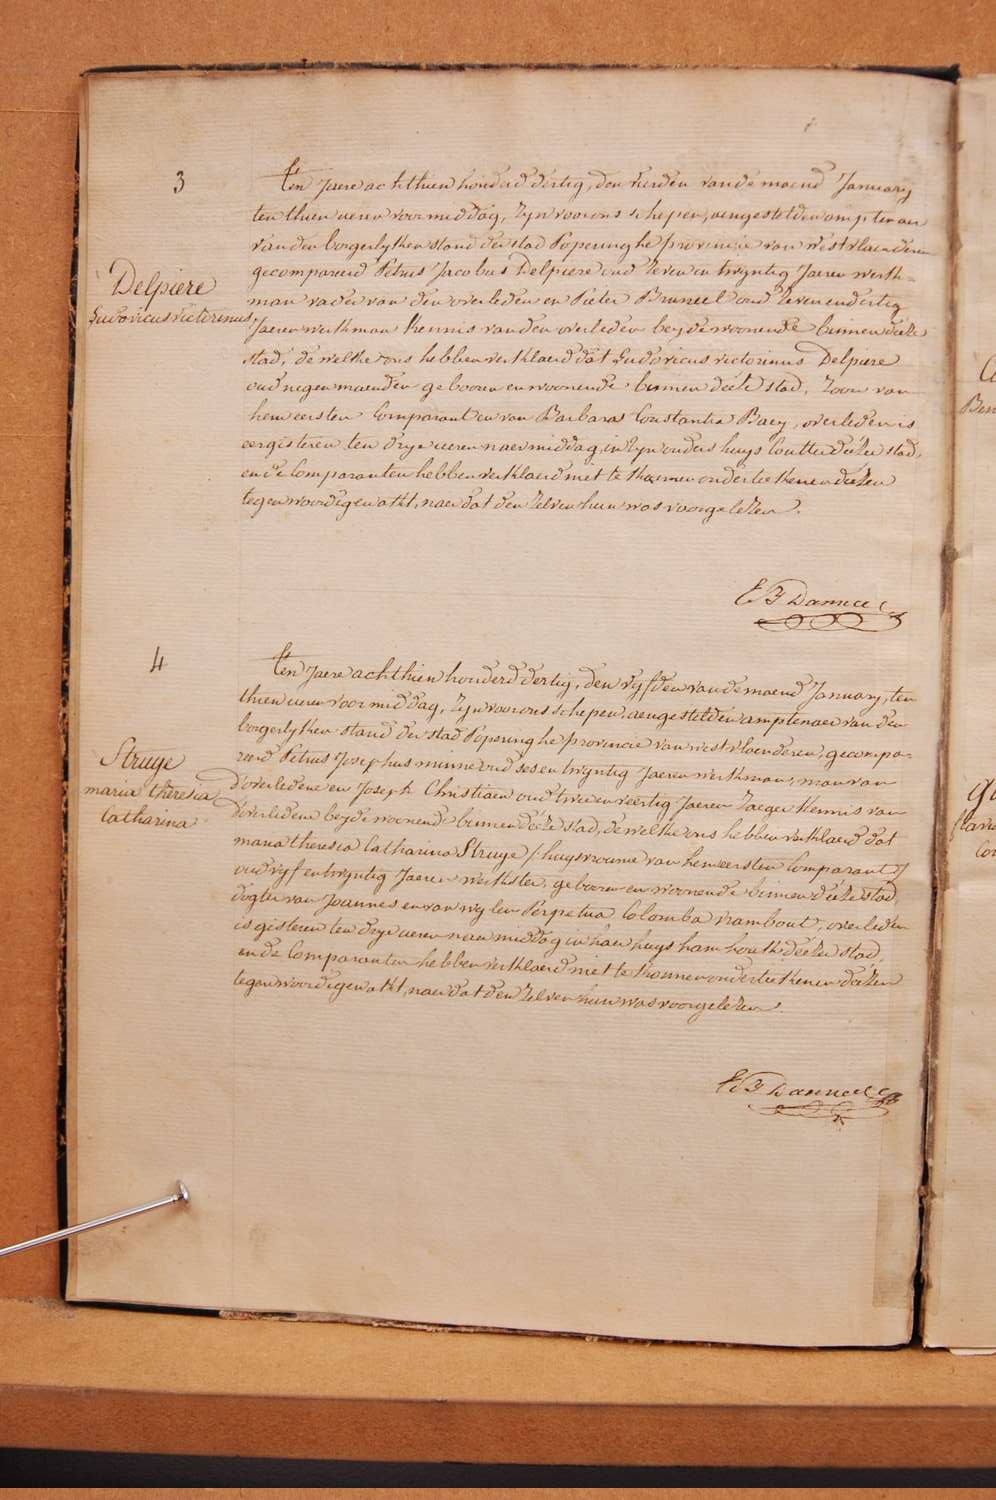 3
Delpiere
Ludovicus victorinus
ten Jaere achthien honderd dertig, den derden van de maend January
ten thien ueren voormiddag, Zyn voor ons schepen, aengestelden amptenaer
van den borgerlyken stand der stad Poperinghe provincie van westvlaenderen
gecompareerd Petrus Jacobus Delpiere oud Zeven en twyntig Jaeren werk=
man vader van den overleden en Pieter Bruneel oud Zeven en dertig
Jaeren werkman Kennis van den overleden beyde woonende binnen deeze
stad, de welke ons hebben verklaerd dat Ludovicus victorinus Delpiere
oud negen maenden geboren en woonende binnen deeze stad, Zoon van
hem eersten Comparant en van Barbara Constantia Baey, overleden is
eergisteren ten drye ueren naermiddag in Zyn ouders huys Coutter deezer stad,
en de Comparanten hebben verklaerd niet te konnen onderteekenen deezen
tegenwoordigen akt, naer dat den Zelven hun was voorgelezen.
E B Danneel
4
Struye
maria theresia
Catharina
ten Jaere achthien honderd dertig, den vyfden van de maend January, ten
thien ueren voormiddag, Zyn voor ons schepen, aengestelden amptenaer van den
borgerlyken stand der stad Poperinghe provincie van westvlaenderen, gecompa=
reerd Petrus Josephus minne oud ses en twyntig Jaeren werkman, man van
d'overledene en Joseph Christiaen oud twee en veertig Jaeren Zaeger Kennis van
d'overledene beyde woonende binnen deeze stad, de welke ons hebben verklaerd dat
maria theresia Catharina Struye /: huysvrouwe van hem eersten Comparant :/
oud vyf en twyntig Jaeren werkster, geboren en woonende binnen deeze stad,
dogter van Joannes en van wylen Perpetua Colomba Rambout, overleden
is gisteren ten drye ueren naermiddag in haer huys ham houck deezer stad,
en de Comparanten hebben verklaerd niet te konnen onderteekenen deezen
tegenwoordigen akt, naer dat den Zelven hun was voorgelezen.
E B Danneel